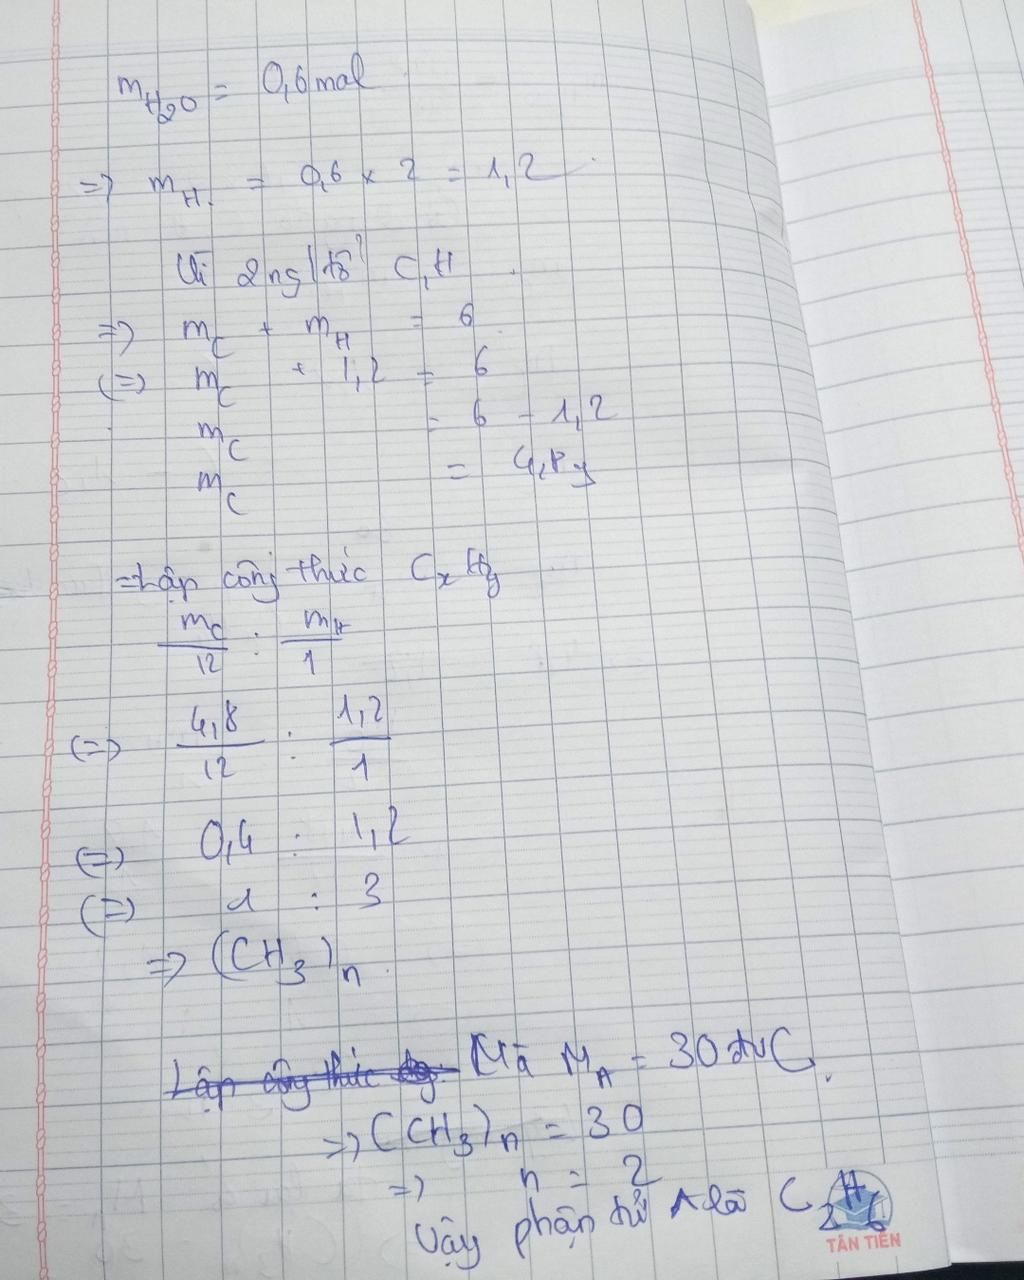 mH2O = 0,6 mol
=> mH = 0,6 x 2 = 1,2
Vì 2 ng tố C, H
=> mC + mH = 6
(=) mC + 1,2 = 6
mC = 6 - 1,2
mC = 4,8g
=> Lập công thức CxHy
mC/12 : mH/1
(=) 4,8/12 : 1,2/1
(=) 0,4 : 1,2
(=) 1 : 3
=> (CH3)n
Lập công thức Mà MA = 30 đvC
=> (CH3)n = 30
=> n = 2
Vậy phận tử A là C2H6
TÂN TIẾN